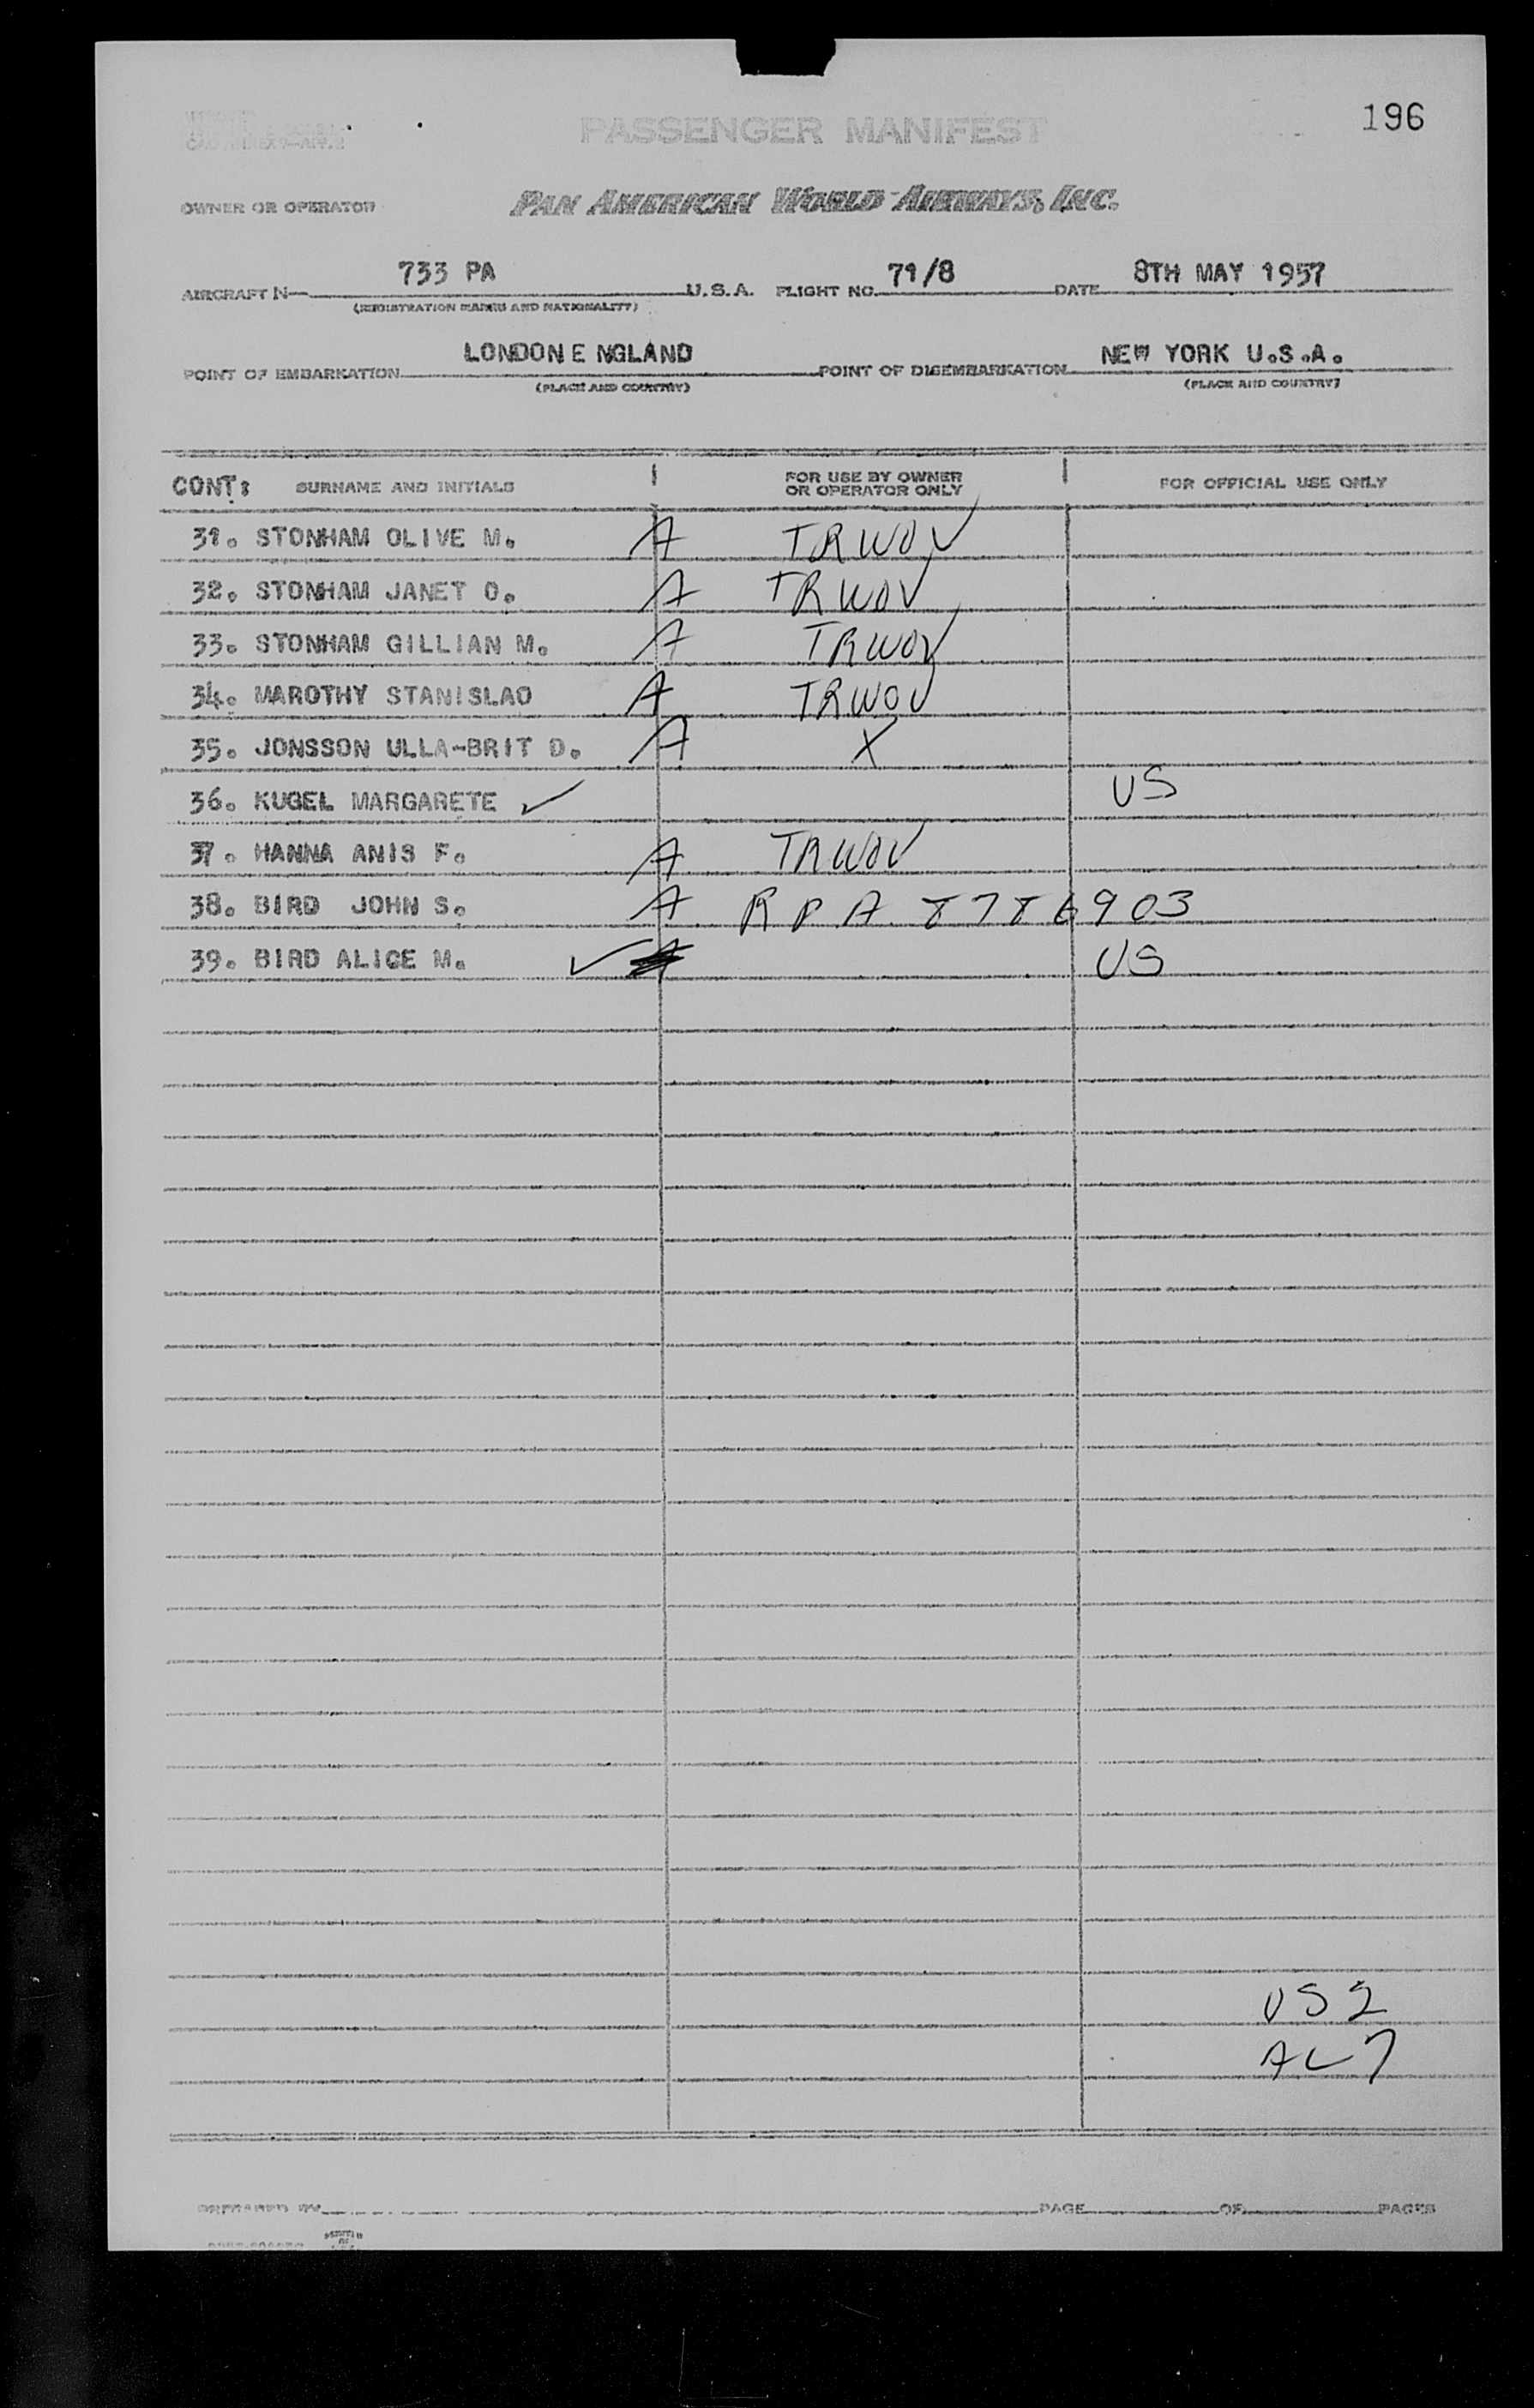 196
PASSENGER MANIFEST
OWNER OR OPERATOR PAN AMERICAN WORLD AIRWAYS, INC.
AIRCRAFT N— 733 PA U.S.A. FLIGHT NO. 71/8 DATE 8TH MAY 1957
(REGISTRATION MARKS AND NATIONALITY)
POINT OF EMBARKATION LONDON E NGLAND POINT OF DISEMBARKATION NEW YORK U.S.A.
(PLACE AND COUNTRY) (PLACE AND COUNTRY)
CONT: SURNAME AND INITIALS FOR USE BY OWNER OR OPERATOR ONLY FOR OFFICIAL USE ONLY
31. STONHAM OLIVE M. A TRWOV
32. STONHAM JANET O. A TRWOV
33. STONHAM GILLIAN M. A TRWOV
34. MAROTHY STANISLAO A TRWOV
35. JONSSON ULLA-BRIT D. A X
36. KUGEL MARGARETE ✓ US
37. HANNA ANIS F. A TRWOV
38. BIRD JOHN S. A RPA 8786903
39. BIRD ALICE M. ✓ US
US 2
AL 7
PREPARED BY PAGE OF PAGES